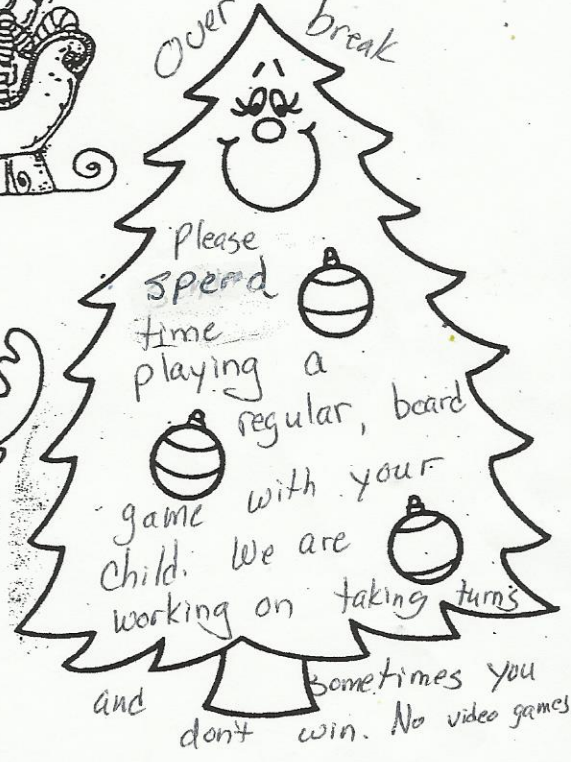 Over break
Please
spend
time
playing a
regular, board
game with your
child. We are
working on taking turns
and sometimes you
don't win. No video games